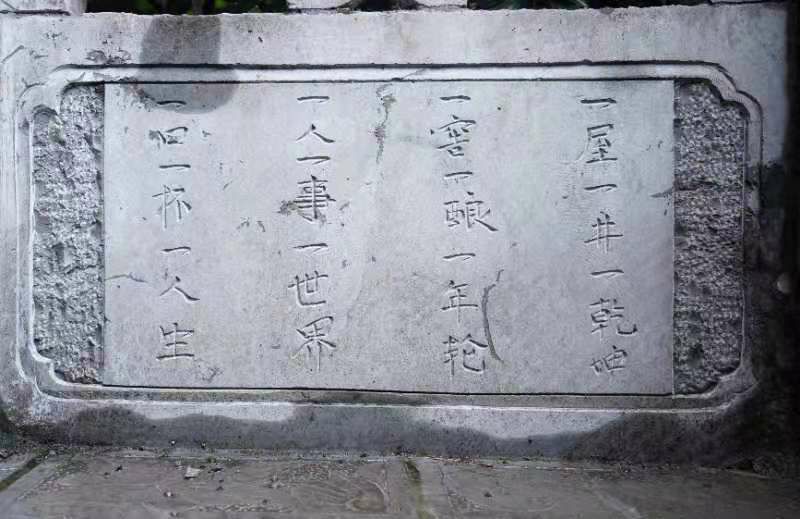 一屋一井一乾坤
一窖一酿一年轮
一人一事一世界
一口一杯一人生